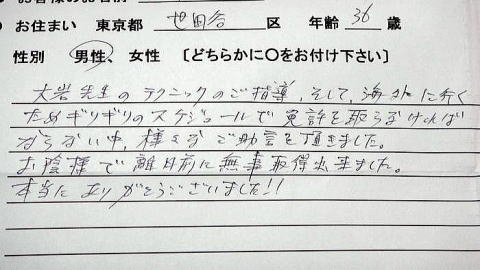 お住まい 東京都 世田谷 区 年齢 36 歳
性別 男性、女性 〔どちらかに〇をお付け下さい〕
大岩先生のテクニックのご指導、そして、海外に行く
ためギリギリのスケジュールで免許を取らなければ
ならない中、様々なご助言を頂きました。
お陰様で離日前に無事取得出来ました。
本当にありがとうございました!!